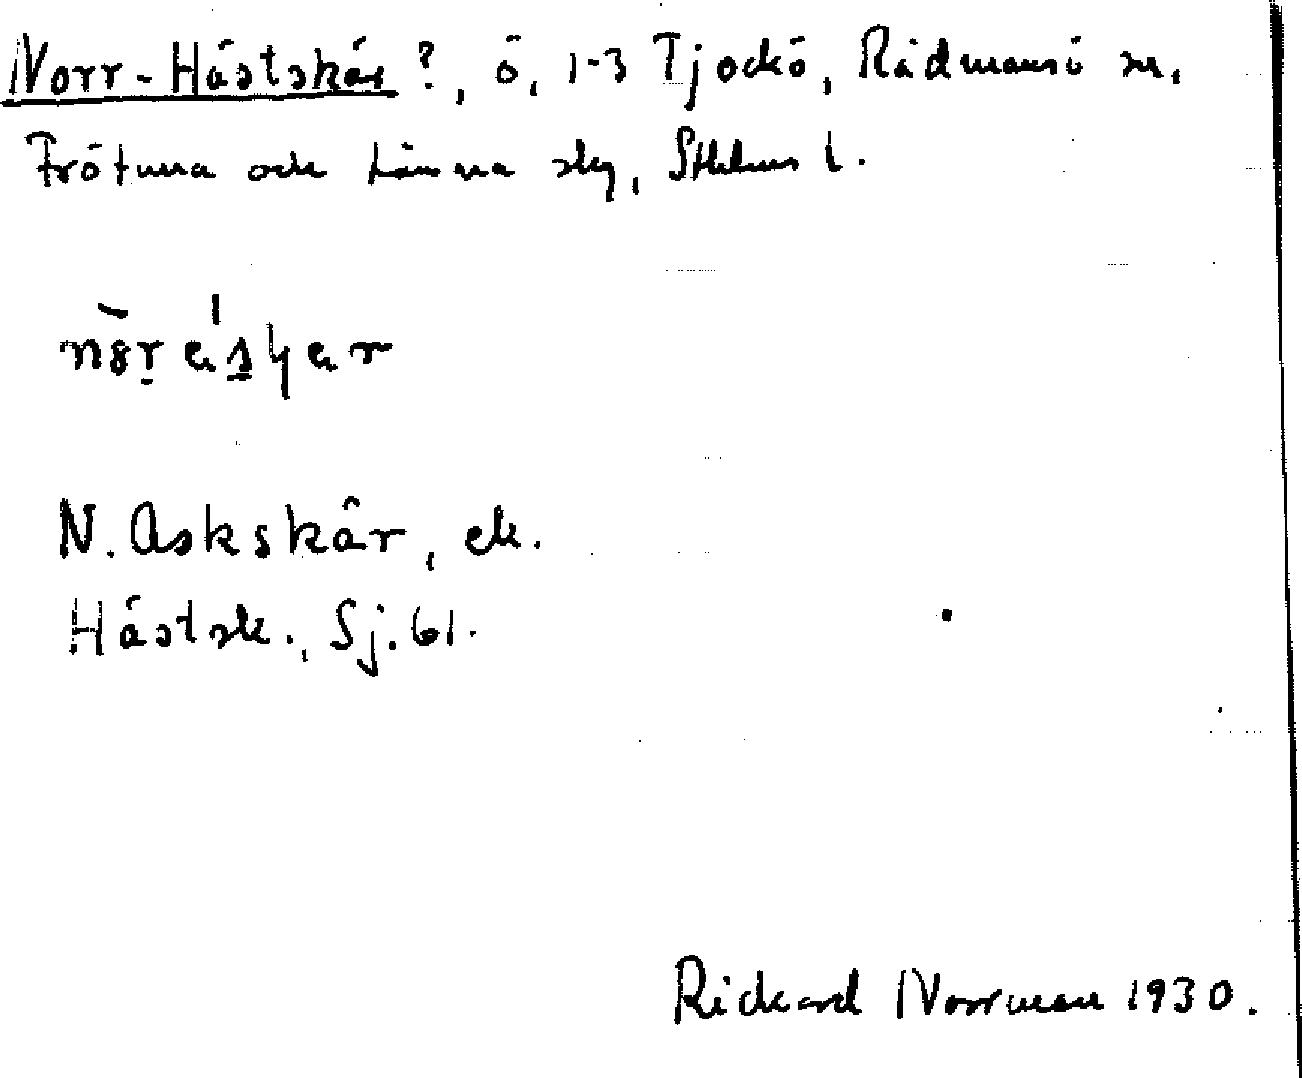 Norr-Hästskär ?, ö, 1-3 Tjockö, Rådmansö sn,
Frötuna och Länna skg, Sthlms l.
N. Askskär, ek.
Hästsk., Sj. 61.
Rickard Norrman 1930.